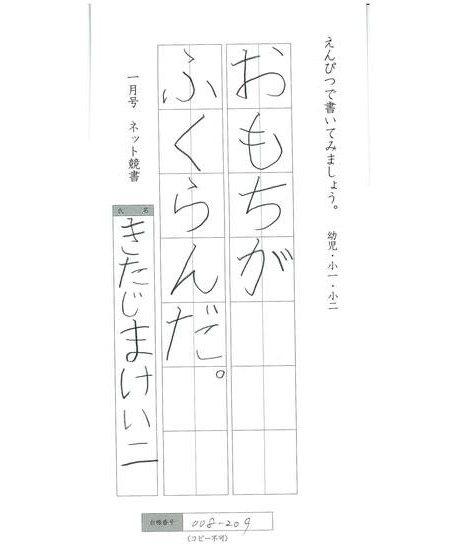 えんぴつで書いてみましょう。　幼児・小一・小二
おもちが
ふくらんだ。
一月号　ネット競書
氏名
きたじまけい二
台帳番号 008-209
(コピー不可)